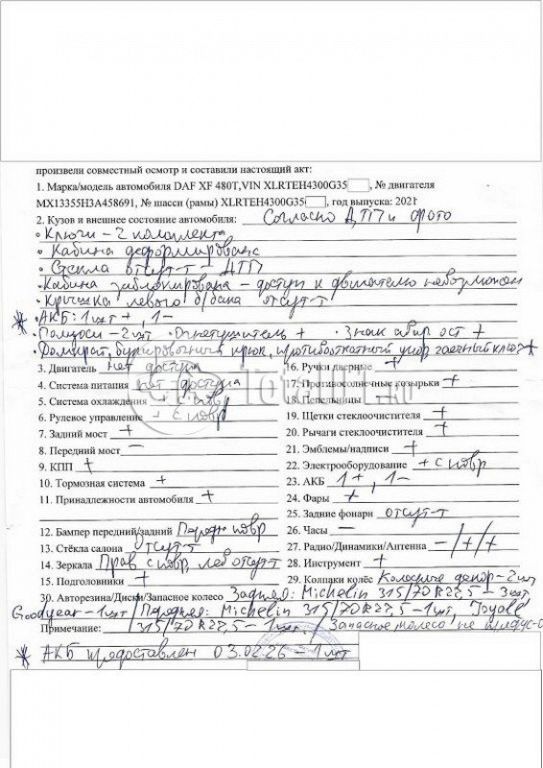 произвели совместный осмотр и составили настоящий акт:
1. Марка/модель автомобиля DAF XF 480T,VIN XLRTEH4300G35, № двигателя
MX13355H3A458691, № шасси (рамы) XLRTEH4300G35, год выпуска: 2021
2. Кузов и внешнее состояние автомобиля: Согласно ДТП и фото
• Ключи – 2 комплекта
• Кабина деформирована
• Стекла отсут-т – ДТП
• Кабина заблокирована – доступ к двигателю невозможен
• Крышка левого б/бака отсут-т
* • АКБ: 1шт +, 1 –
• Башмаки – 2шт • Огнетушитель + • Знак авар ост +
• Домкрат, буксировочный крюк, противооткатный упор, гаечный ключ +
3. Двигатель нет доступа 16. Ручки дверные +
4. Система питания нет доступа 17. Противосолнечные козырьки +
5. Система охлаждения + с повр 18. Пепельницы
6. Рулевое управление + с повр 19. Щетки стеклоочистителя +
7. Задний мост + 20. Рычаги стеклоочистителя +
8. Передний мост – 21. Эмблемы/надписи +
9. КПП + 22. Электрооборудование + с повр
10. Тормозная система + 23. АКБ 1+, 1–
11. Принадлежности автомобиля + 24. Фары +
25. Задние фонари отсут-т
12. Бампер передний/задний Передн повр 26. Часы –
13. Стёкла салона отсут-т 27. Радио/Динамики/Антенна –/+/+
14. Зеркала Прав с повр, лев отсут-т 28. Инструмент +
15. Подголовники + 29. Колпаки колёс Колесные декор – 2шт
30. Авторезина/Диски/Запасное колесо Заднее: Michelin 315/70R22,5 – 3шт,
Goodyear – 1шт / Переднее: Michelin 315/70R22,5 – 1шт,
Примечание: 315/70R22,5 – 1шт. / Запасное колесо не предус-о
* АКБ предоставлен 03.02.26 – 1шт